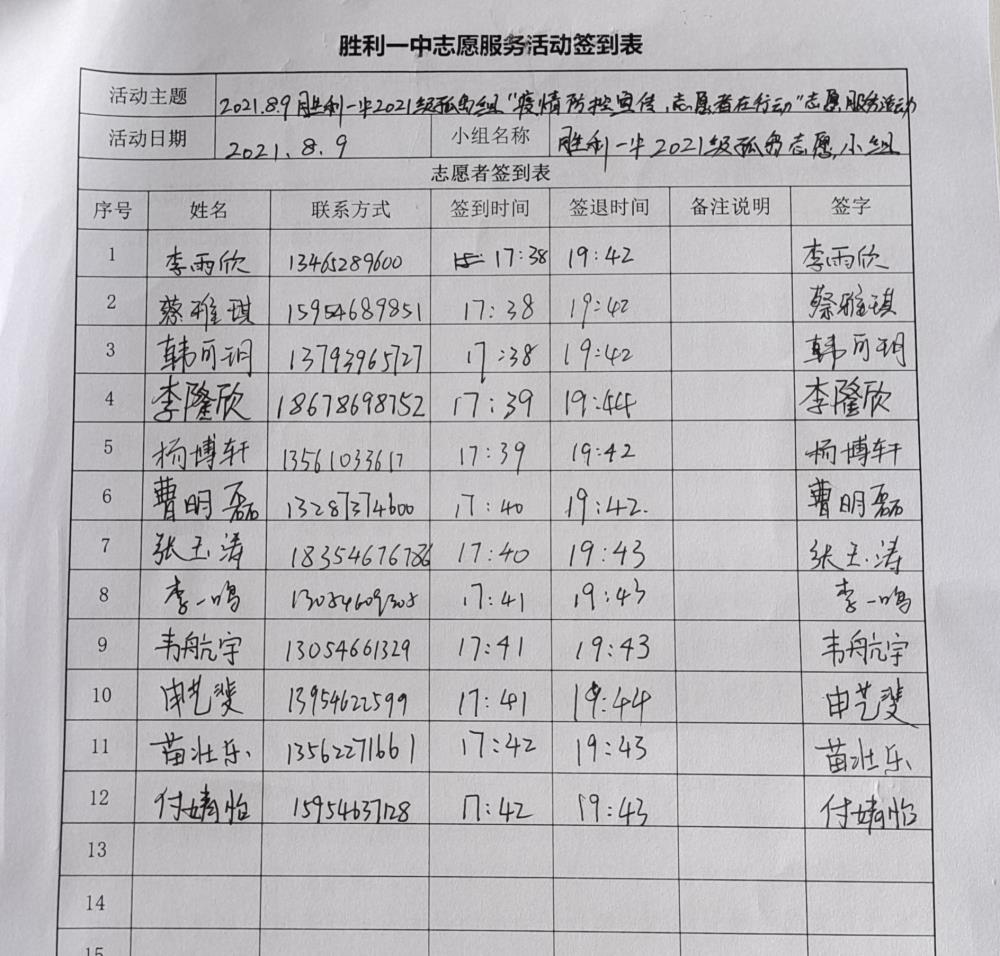 胜利一中志愿服务活动签到表
活动主题 2021.8.9胜利一中2021级孤勇组"疫情防控宣传,志愿者在行动"志愿服务活动
活动日期 2021.8.9 小组名称 胜利一中2021级孤勇志愿小组
志愿者签到表
序号 姓名 联系方式 签到时间 签退时间 备注说明 签字
1 李雨欣 13465289600 17:38 19:42 李雨欣
2 蔡雅琪 15954689851 17:38 19:42 蔡雅琪
3 韩可玥 13793965727 17:38 19:42 韩可玥
4 李隆欣 18678698752 17:39 19:44 李隆欣
5 杨博轩 13561033617 17:39 19:42 杨博轩
6 曹明磊 13287374600 17:40 19:42. 曹明磊
7 张玉涛 18354676786 17:40 19:43 张玉涛
8 李一鸣 17:41 19:43 李一鸣
9 韦航宇 13054661329 17:41 19:43 韦航宇
10 申艺斐 13954622599 17:41 19:44 申艺斐
11 苗壮乐 13562271661 17:42 19:43 苗壮乐
12 付婧怡 15954637128 17:42 19:43 付婧怡
13
14
15